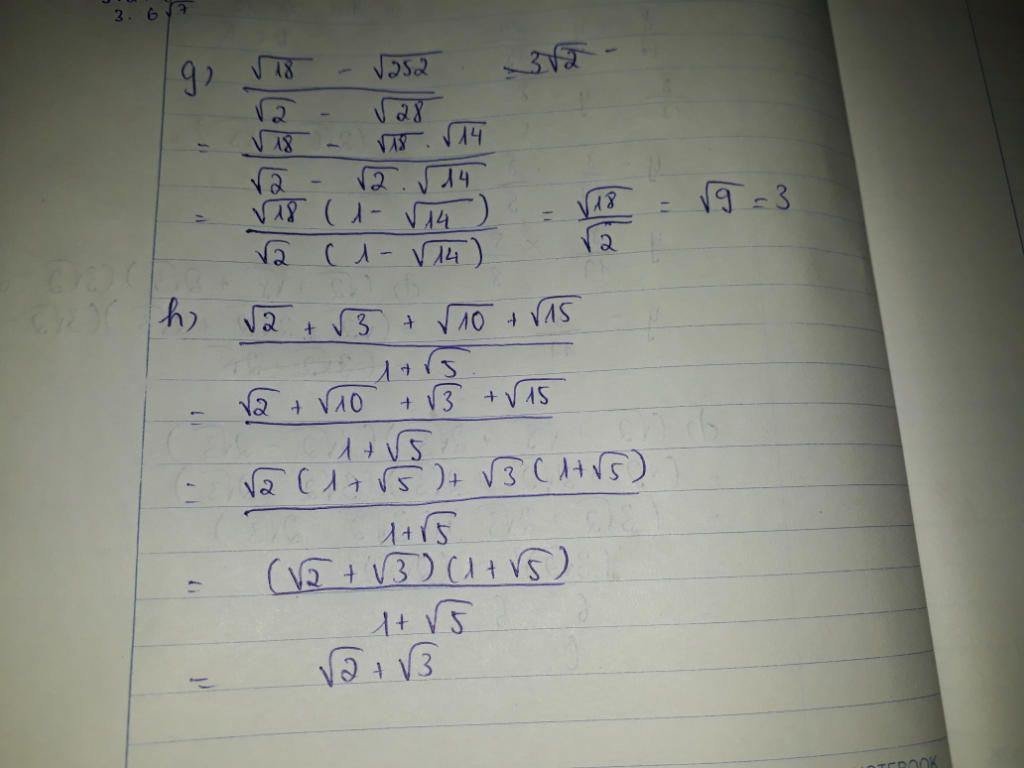 3. 6√7
g) (√18 - √252)/(√2 - √28) = 3√2 -
= (√18 - √18 . √14)/(√2 - √2 . √14)
= (√18 (1 - √14))/(√2 (1 - √14)) = √18/√2 = √9 = 3
h) (√2 + √3 + √10 + √15)/(1 + √5)
= (√2 + √10 + √3 + √15)/(1 + √5)
= (√2 (1 + √5) + √3 (1 + √5))/(1 + √5)
= ((√2 + √3)(1 + √5))/(1 + √5)
= √2 + √3
NOTEBOOK